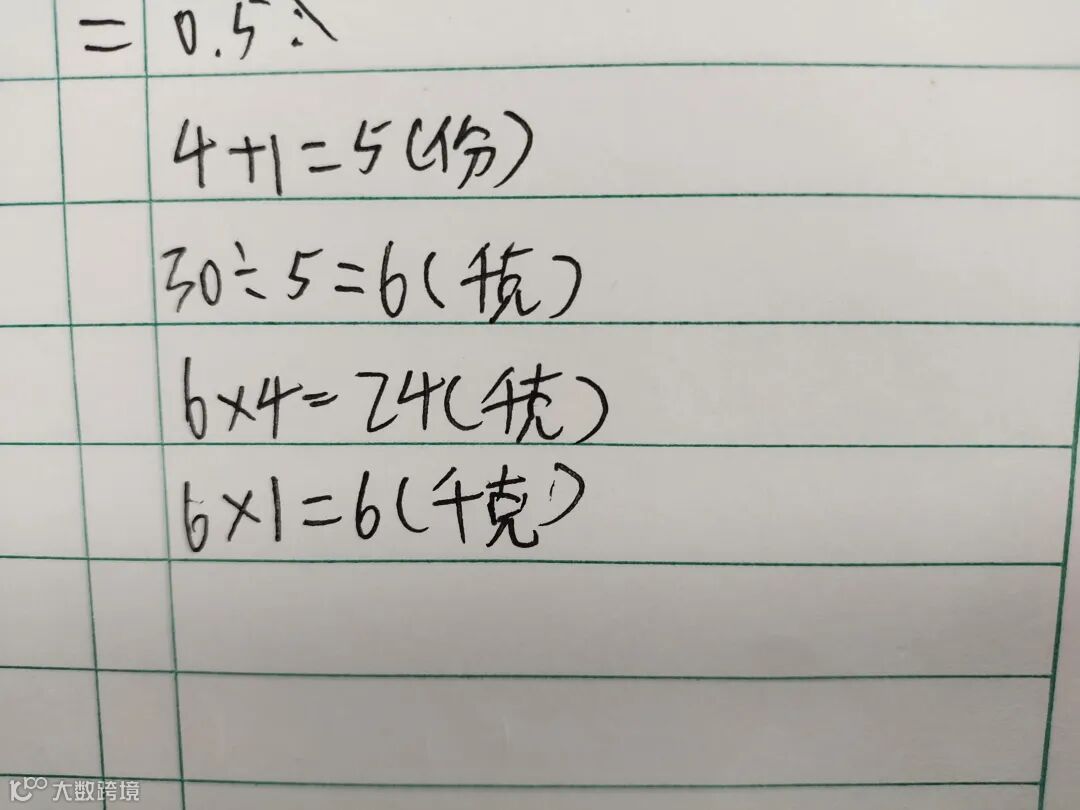 = 0.5
4+1=5(份)
30÷5=6(千克)
6×4=24(千克)
6×1=6(千克)
大数跨境